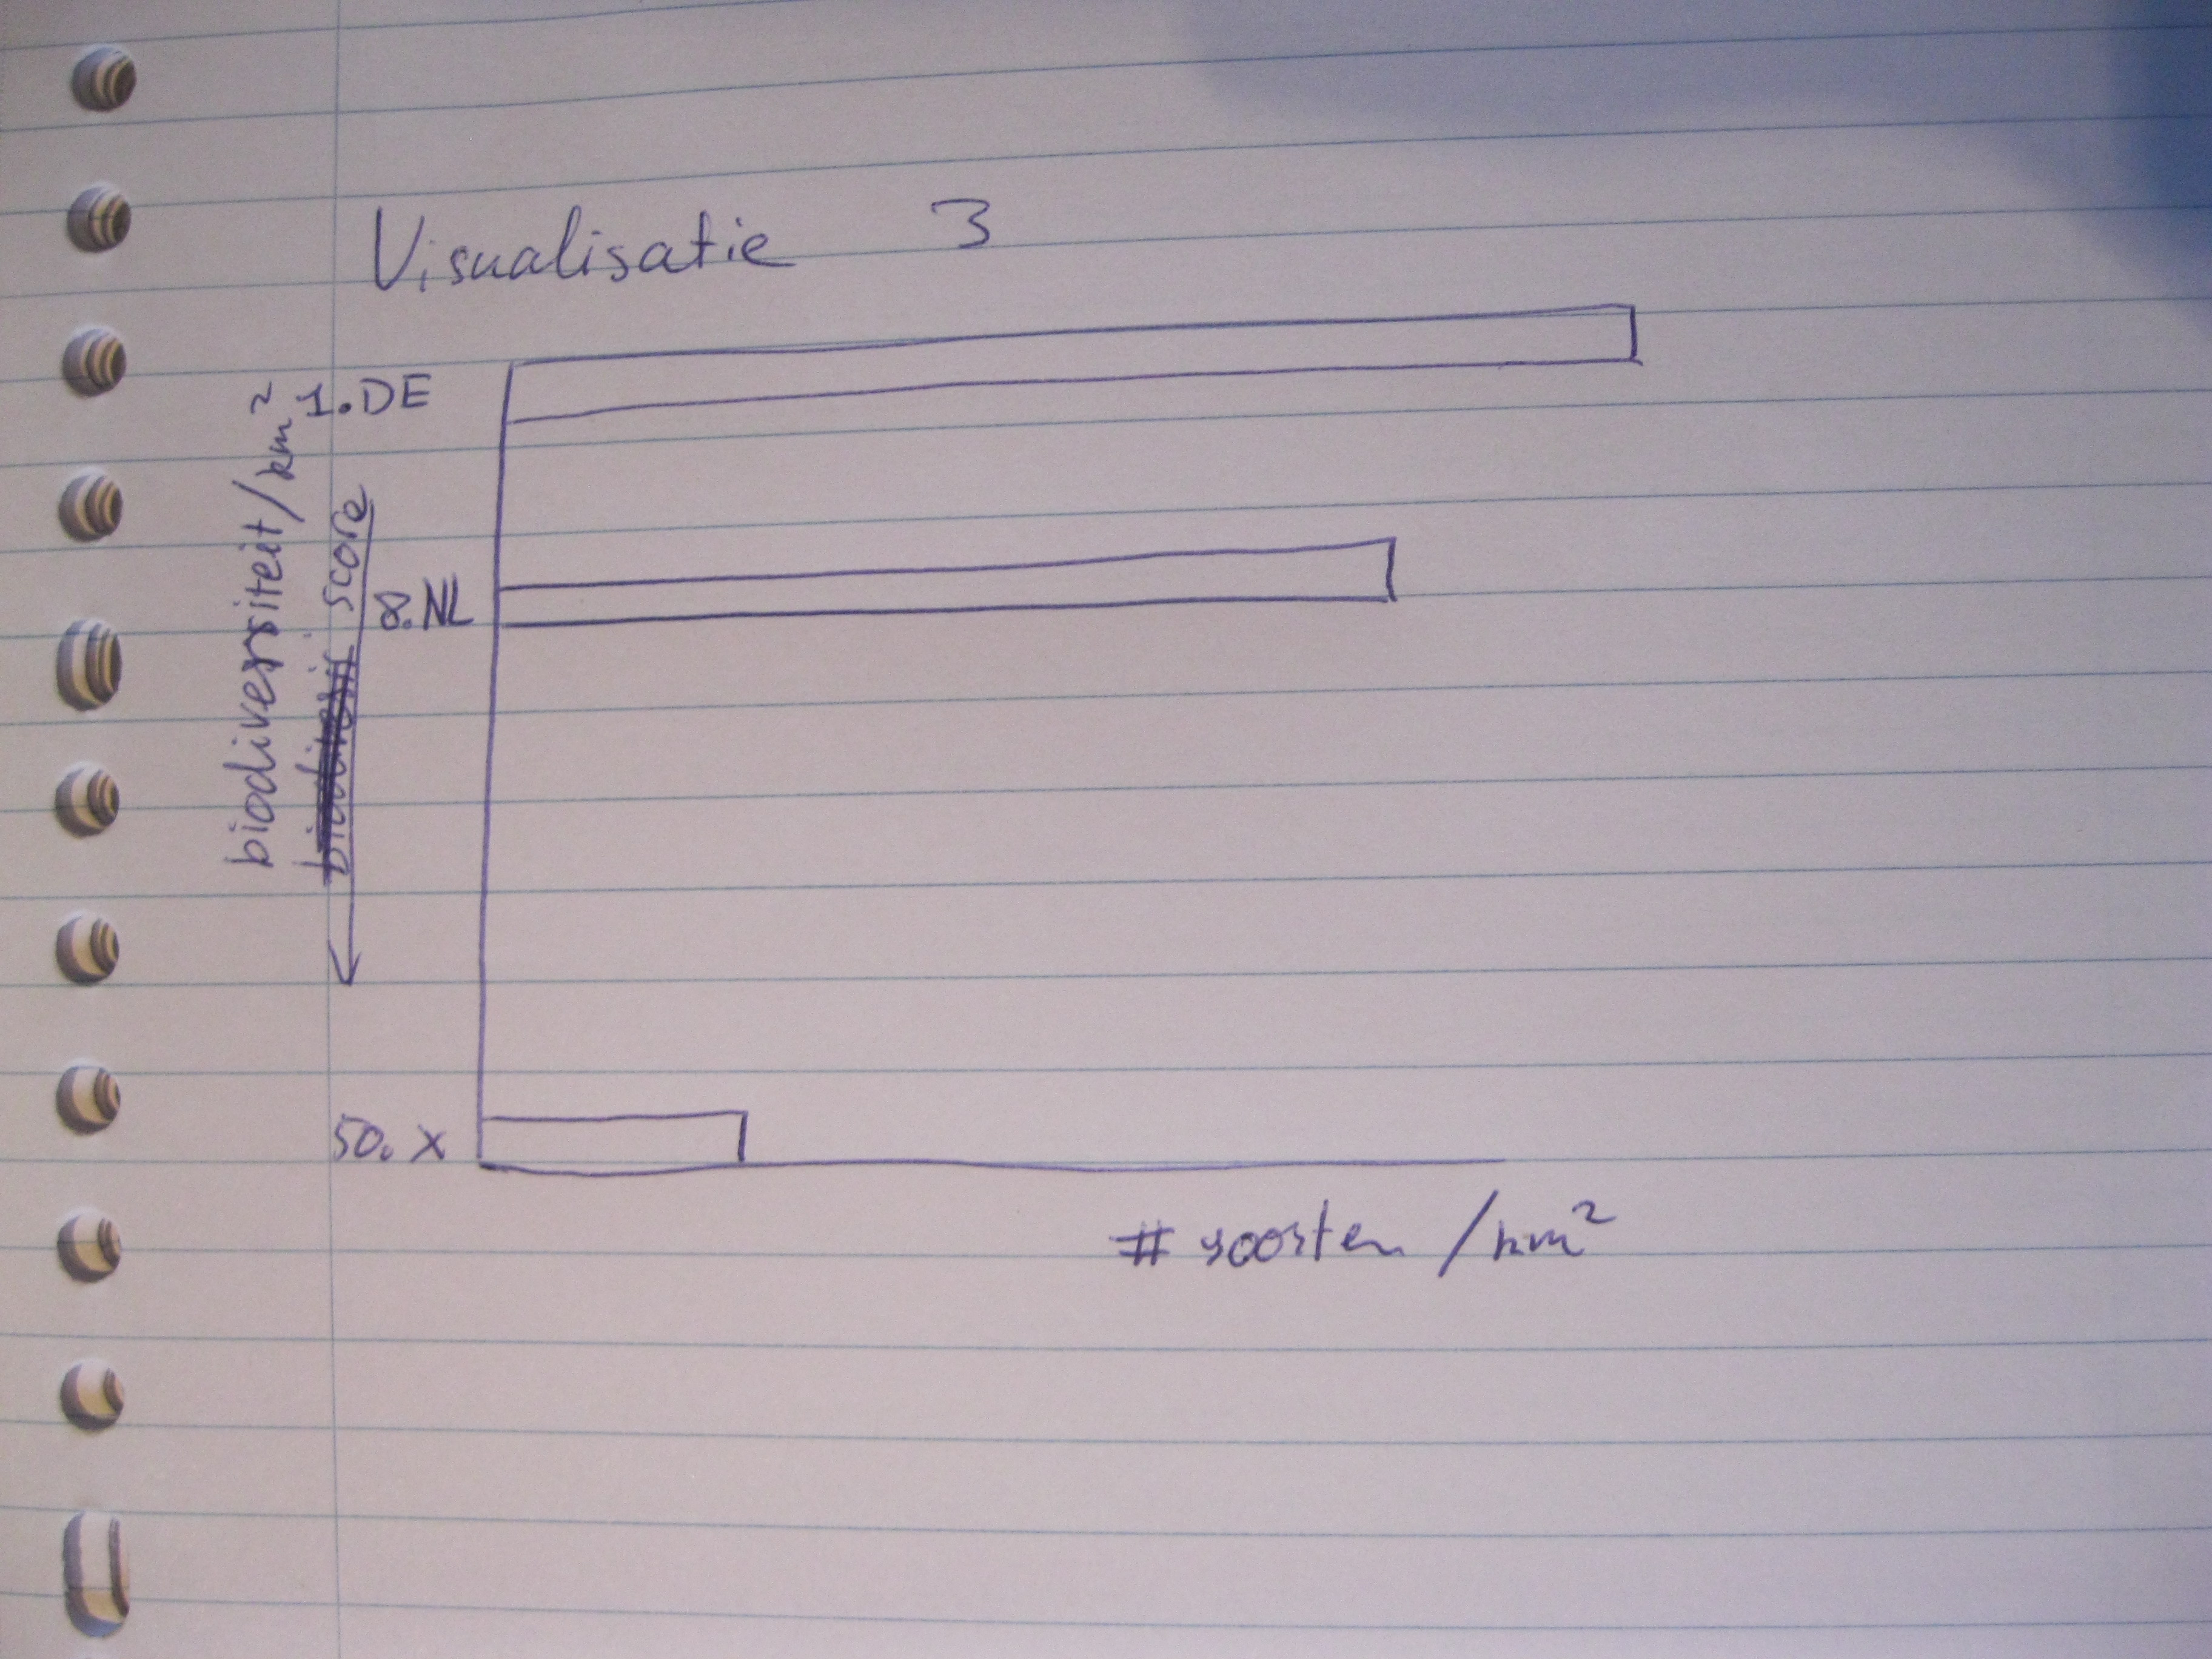 Visualisatie 3
biodiversiteit/km²
score
1. DE
8. NL
50. x
# soorten /km²